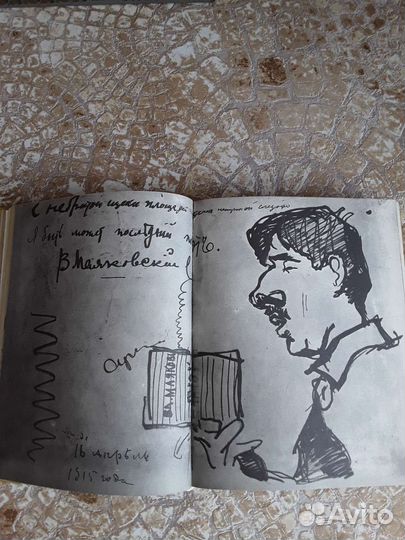 С небритой щеки площадей стекая ненужной слезою
Я быть может последний поэтъ.
В Маяковскій
16 апрѣль
1915 года
Avito